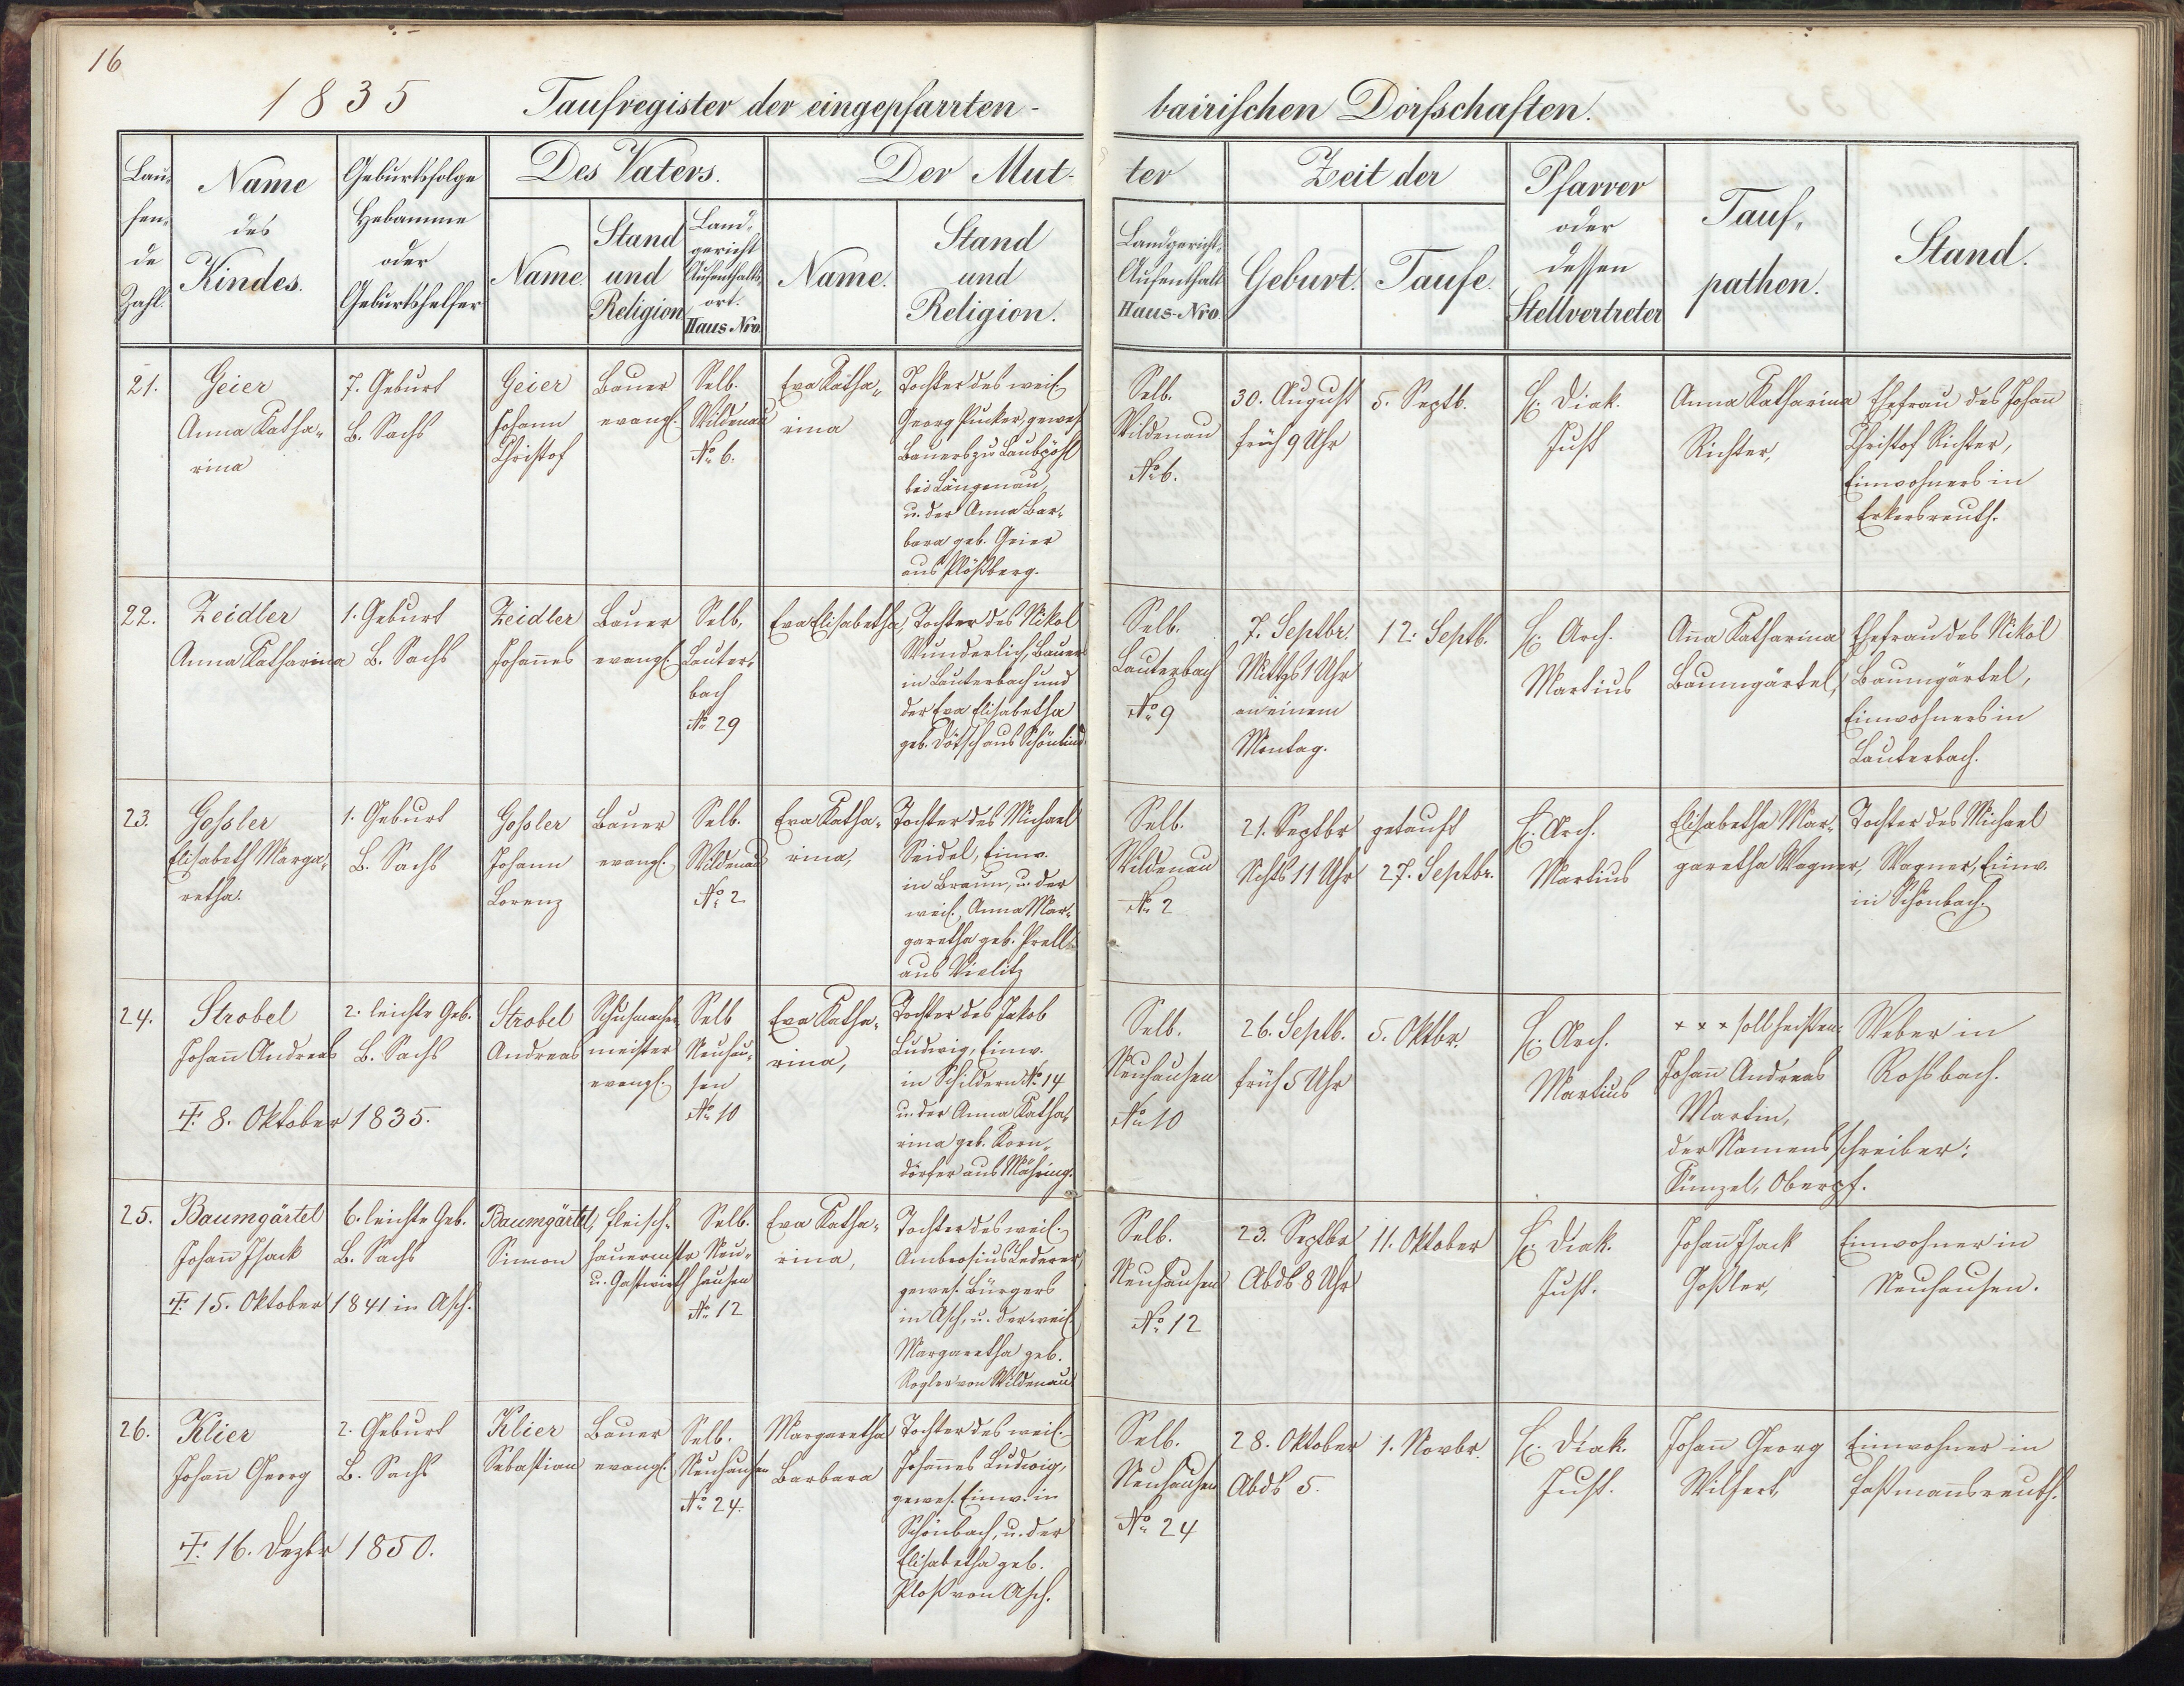 16
1835 Taufregister der eingepfarrten- bairischen Dorfschaften.
Lau-
fen-
de
Zahl.
Name
des
Kindes.
Geburtsfolge
Hebamme
oder
Geburtshelfer
Des Vaters.
Name.
Stand
und
Religion
Land-
gericht
Aufenthalts-
ort.
Haus-Nro.
Der Mut-
ter
Name.
Stand
und
Religion.
Landgericht,
Aufenthalt
Haus-Nro.
Zeit der
Geburt.
Taufe.
Pfarrer
oder
dessen
Stellvertreter
Tauf-
pathen.
Stand.
21.
Geier
Anna Katha-
rina
7. Geburt
B. Sachs
Geier
Johann
Christof
Bauer
evangl.
Selb.
Wildenau
No. 6.
Eva Katha-
rina
Tochter des weil.
Georg Pucker, gewes.
Bauers zu Laubpöhl
bei Längenau,
u. der Anna Bar-
bara geb. Geier
aus Plößberg.
Selb.
Wildenau
No. 6.
30. August
früh 9 Uhr
5. Septb.
H. Diak.
Just
Anna Katharina
Richter,
Ehefrau des Johann
Christof Richter,
Einwohners in
Erkersreuth.
22.
Zeidler
Anna Katharina
1. Geburt
B. Sachs
Zeidler
Johannes
Bauer
evangl.
Selb.
Lauter-
bach
No. 29
Eva Elisabetha,
Tochter des Nikol
Wunderlich, Bauers
in Lauterbach und
der Eva Elisabetha
geb. Dötsch aus Schönlind.
Selb.
Lauterbach
No. 9
7. Septbr.
Mittgs 1 Uhr
an einem
Montag.
12. Septb.
H. Arch.
Martius
Anna Katharina
Baumgärtel,
Ehefrau des Nikol
Baumgärtel,
Einwohners in
Lauterbach.
23.
Gossler
Elisabeth Marga-
retha.
1. Geburt
B. Sachs
Gossler
Johann
Lorenz
Bauer
evangl.
Selb.
Wildenau
No. 2
Eva Katha-
rina,
Tochter des Michael
Seidel, Einw.
in Braun, u. der
weil. Anna Mar-
garetha geb. Prell
aus Vielitz
Selb.
Wildenau
No. 2
21. Septbr
Nchts 11 Uhr
getauft
27. Septbr.
H. Arch.
Martius
Elisabetha Mar-
garetha Wagner,
Tochter des Michael
Wagner, Einw.
in Schönbach.
24.
Strobel
Johann Andreas
2. leichte Geb.
B. Sachs
8. Oktober 1835.
Strobel
Andreas
Schuhmacher-
meister
evangl.
Selb
Neuhau-
sen
No. 10
Eva Katha-
rina,
Tochter des Jakob
Ludwig, Einw.
in Schildern No. 14
u. der Anna Katha-
rina geb. Korn-
dörfer aus Mähring.
Selb.
Neuhausen
No. 10
26. Septb.
früh 5 Uhr
5. Oktbr.
H. Arch.
Martius
x x x soll heißen:
Johann Andreas
Martin,
der Namensschreiber:
Künzel, Oberpf.
Weber in
Rossbach.
25.
Baumgärtel
Johann Isack
6. leichte Geb.
B. Sachs
15. Oktober 1841 in Asch.
Baumgärtel,
Simon
Fleisch-
hauermstr
u. Gastwirth
Selb.
Neu-
hausen
No. 12
Eva Katha-
rina,
Tochter des weil.
Ambrosius Lederer,
gewes. Bürgers
in Asch, u. der weil.
Margaretha geb.
Rogler von Wildenau
Selb.
Neuhausen
No. 12
23. Septbr
Abds 8 Uhr
11. Oktober
H. Diak.
Just.
Johann Isack
Goßler,
Einwohner in
Neuhausen.
26.
Klier
Johann Georg
2. Geburt
B. Sachs
16. Dezbr 1850.
Klier
Sebastian
Bauer
evangl.
Selb.
Neuhausen
No. 24.
Margaretha
Barbara
Tochter des weil.
Johannes Ludwig,
gewes. Einw. in
Schönbach, u. der
Elisabetha geb.
Ploß von Asch.
Selb.
Neuhausen
No. 24
28. Oktober
Abds 5.
1. Novbr.
H. Diak.
Just.
Johann Georg
Wilfert,
Einwohner in
Faßmansreuth.